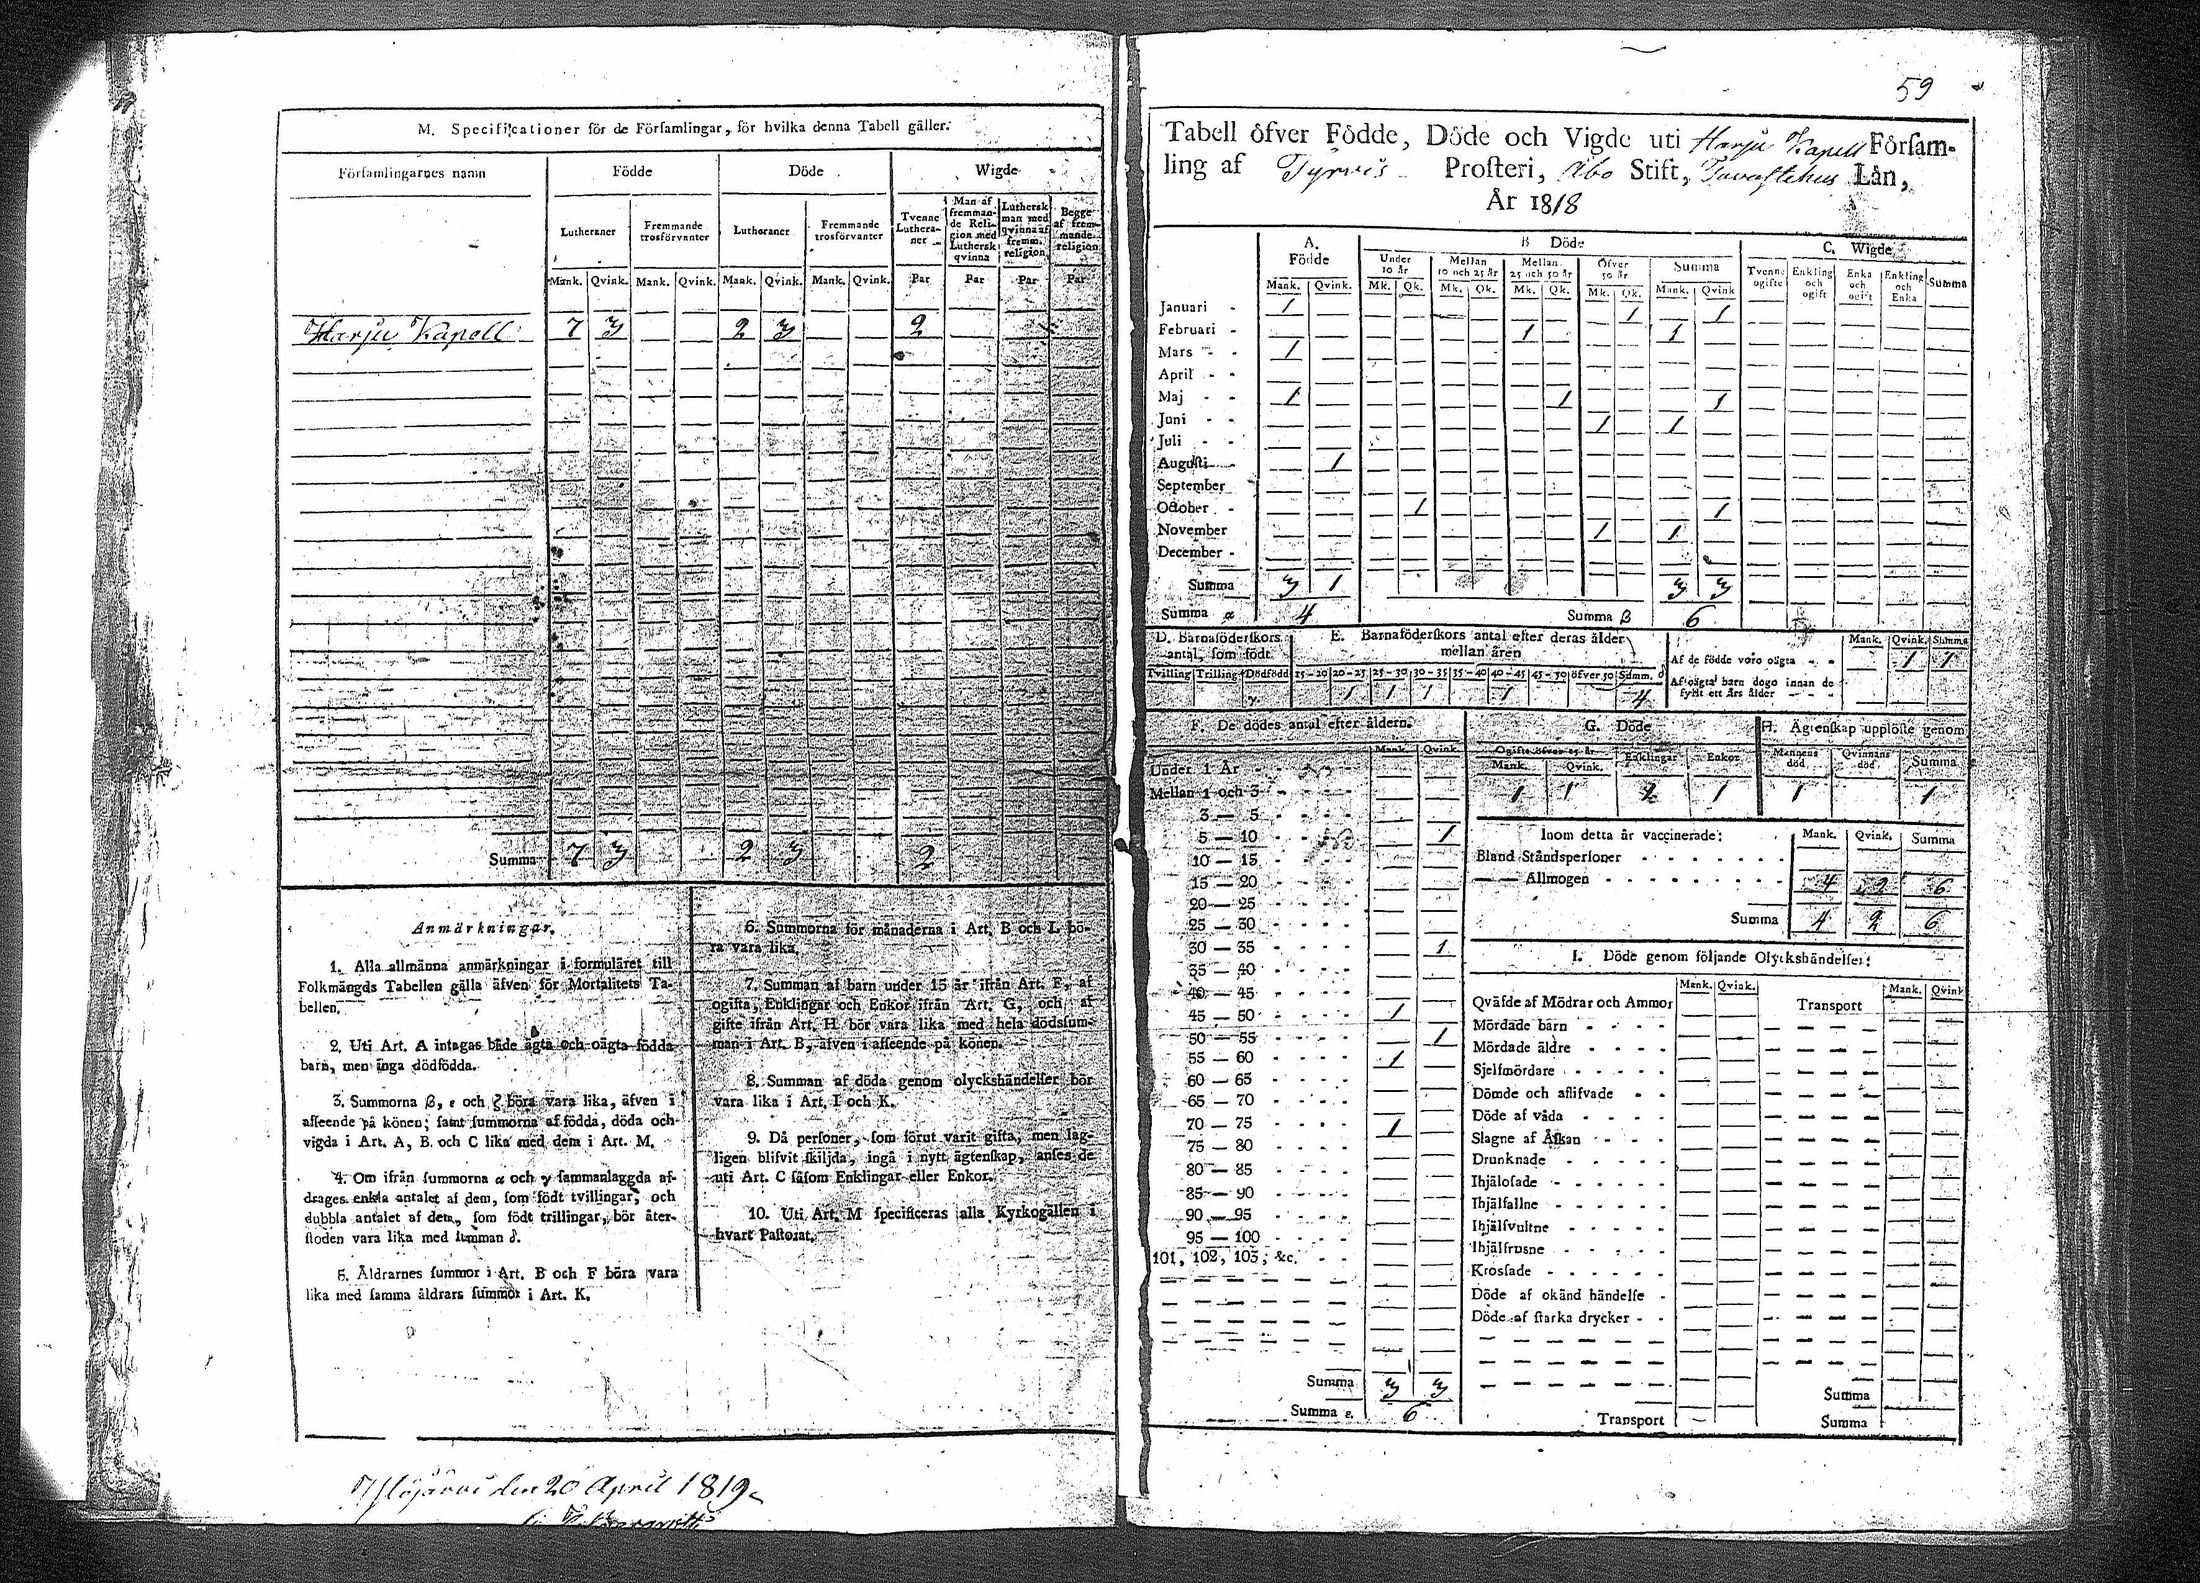 M. Specificationer för de Förſamlingar, för hvilka denna Tabell gäller.
Förſamlingarnes namn Födde Döde Wigde
Lutheraner Fremmande trosförvanter Lutheraner Fremmande trosförvanter Tvenne Lutheraner Man af fremmande Religion med Luthersk qvinna Luthersk man med qvinna af fremm. religion Begge af fremmande religion
Mank. Qvink. Mank. Qvink. Mank. Qvink. Mank. Qvink. Par Par Par Par
Harju Kapell 7 3 2 3 2
Summa 7 3 2 3 2
Anmärkningar.
1. Alla allmänna anmärkningar i formuläret till
Folkmängds Tabellen gälla äfven för Mortalitets Ta-
bellen.
2. Uti Art. A intagas både ägta och oägta födda
barn, men inga dödfödda.
3. Summorna β, ε och ζ böra vara lika, äfven i
afſeende på könen; ſamt ſummorna af födda, döda och
vigda i Art. A, B. och C lika med dem i Art. M.
4. Om ifrån ſummorna α och γ ſammanlaggda af-
drages enkla antalet af dem, ſom födt tvillingar, och
dubbla antalet af dem, ſom födt trillingar, bör åter-
ſtoden vara lika med ſumman δ.
5. Åldrarnes ſummor i Art. B och F böra vara
lika med ſamma åldrars ſummor i Art. K.
6. Summorna för månaderna i Art. B och L bö-
ra vara lika.
7. Summan af barn under 15 år ifrån Art. F, af
ogifta, Enklingar och Enkor ifrån Art. G, och af
gifte ifrån Art. H bör vara lika med hela dödsſum-
man i Art. B, äfven i afſeende på könen.
8. Summan af döda genom olyckshändelſer bör
vara lika i Art. I och K.
9. Då perſoner, ſom förut varit gifta, men lag-
ligen blifvit ſkiljda, ingå i nytt ägtenſkap, anſes de
uti Art. C ſåſom Enklingar eller Enkor.
10. Uti Art. M ſpecificeras alla Kyrkogällen i
hvart Paſtorat.
den 20 April 1819.
59
Tabell öfver Födde, Döde och Vigde uti Harju Kapell Förſam-
ling af Tyrvis Proſteri, Åbo Stift, Tavaſtehus Län,
År 1818
A. Födde B Döde C. Wigde
Under 10 år Mellan 10 och 25 år Mellan 25 och 50 år Öfver 50 år Summa Tvenne ogifte Enkling och ogift Enka och ogift Enkling och Enka Summa
Mank. Qvink. Mk. Qk. Mk. Qk. Mk. Qk. Mk. Qk. Mank. Qvink
Januari 1 1 1
Februari 1 1
Mars 1
April
Maj 1 1 1
Juni 1 1
Juli
Auguſti 1
September
October 1 1
November 1 1
December
Summa 3 1 3 3
Summa α 4 Summa β 6
D. Barnaföderſkors antal, ſom födt E. Barnaföderſkors antal efter deras ålder mellan åren Mank. Qvink. Summa
Af de födde voro oägta 1 1
Tvilling Trilling Dödfödd 15-20 20-25 25-30 30-35 35-40 40-45 45-50 öfver 50 Summ. δ
Af oägta barn dogo innan de fyllt ett års ålder
γ 1 1 1 1 4
F. De dödes antal efter åldern. G. Döde H. Ägtenſkap upplöſte genom
Mank. Qvink. Ogifte öfver 15 år Enklingar Enkor Mannens död Qvinnans död Summa
Mank. Qvink.
1 1 2 1 1 1
Under 1 År
Mellan 1 och 3
3 — 5
5 — 10 1
10 — 15
15 — 20
20 — 25
25 — 30
30 — 35 1
35 — 40
40 — 45
45 — 50 1
50 — 55 1
55 — 60 1
60 — 65
65 — 70
70 — 75 1
75 — 80
80 — 85
85 — 90
90 — 95
95 — 100
101, 102, 103, &c.
Summa 3 3
Summa ε. 6
Inom detta år vaccinerade: Mank. Qvink. Summa
Bland Ståndsperſoner
— — Allmogen 4 2 6
Summa 4 2 6
I. Döde genom följande Olyckshändelſer:
Mank. Qvink. Mank. Qvink
Qväfde af Mödrar och Ammor Transport
Mördade barn
Mördade äldre
Sjelfmördare
Dömde och aflifvade
Döde af våda
Slagne af Åſkan
Drunknade
Ihjäloſade
Ihjälfallne
Ihjälſvultne
Ihjälfrusne
Krosſade
Döde af okänd händelſe
Döde af ſtarka drycker
Summa
Transport Summa